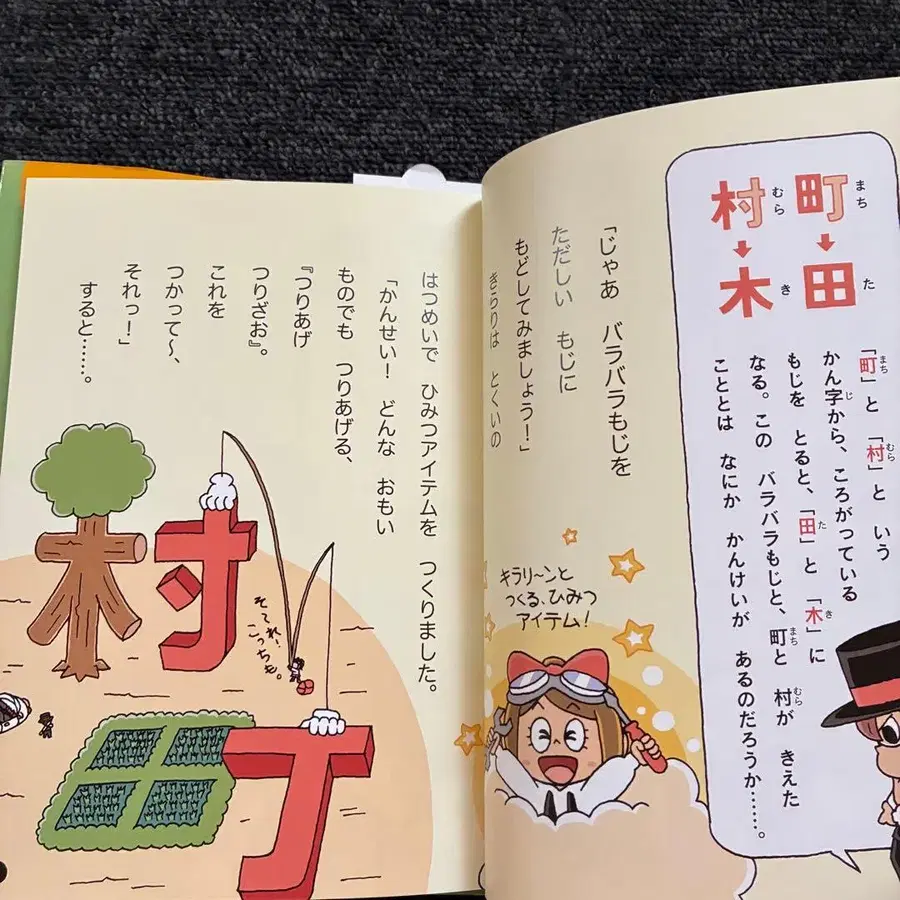 町 まち
↓
田 た
村 むら
↓
木 き
「町」と「村」と いう
かん字から、ころがっている
もじを とると、「田」と「木」に
なる。この バラバラもじと、町と 村が きえた
こととは なにか かんけいが あるのだろうか……。
「じゃあ バラバラもじを
ただしい もじに
もどしてみましょう!」
きらりは とくいの
キラリ〜ンと
つくる、ひみつ
アイテム!
はつめいで ひみつアイテムを つくりました。
「かんせい! どんな おもい
ものでも つりあげる、
『つりあげ
つりざお』。
これを
つかって〜、
それっ!」
すると……。
村
それ、
こっちも。
田丁